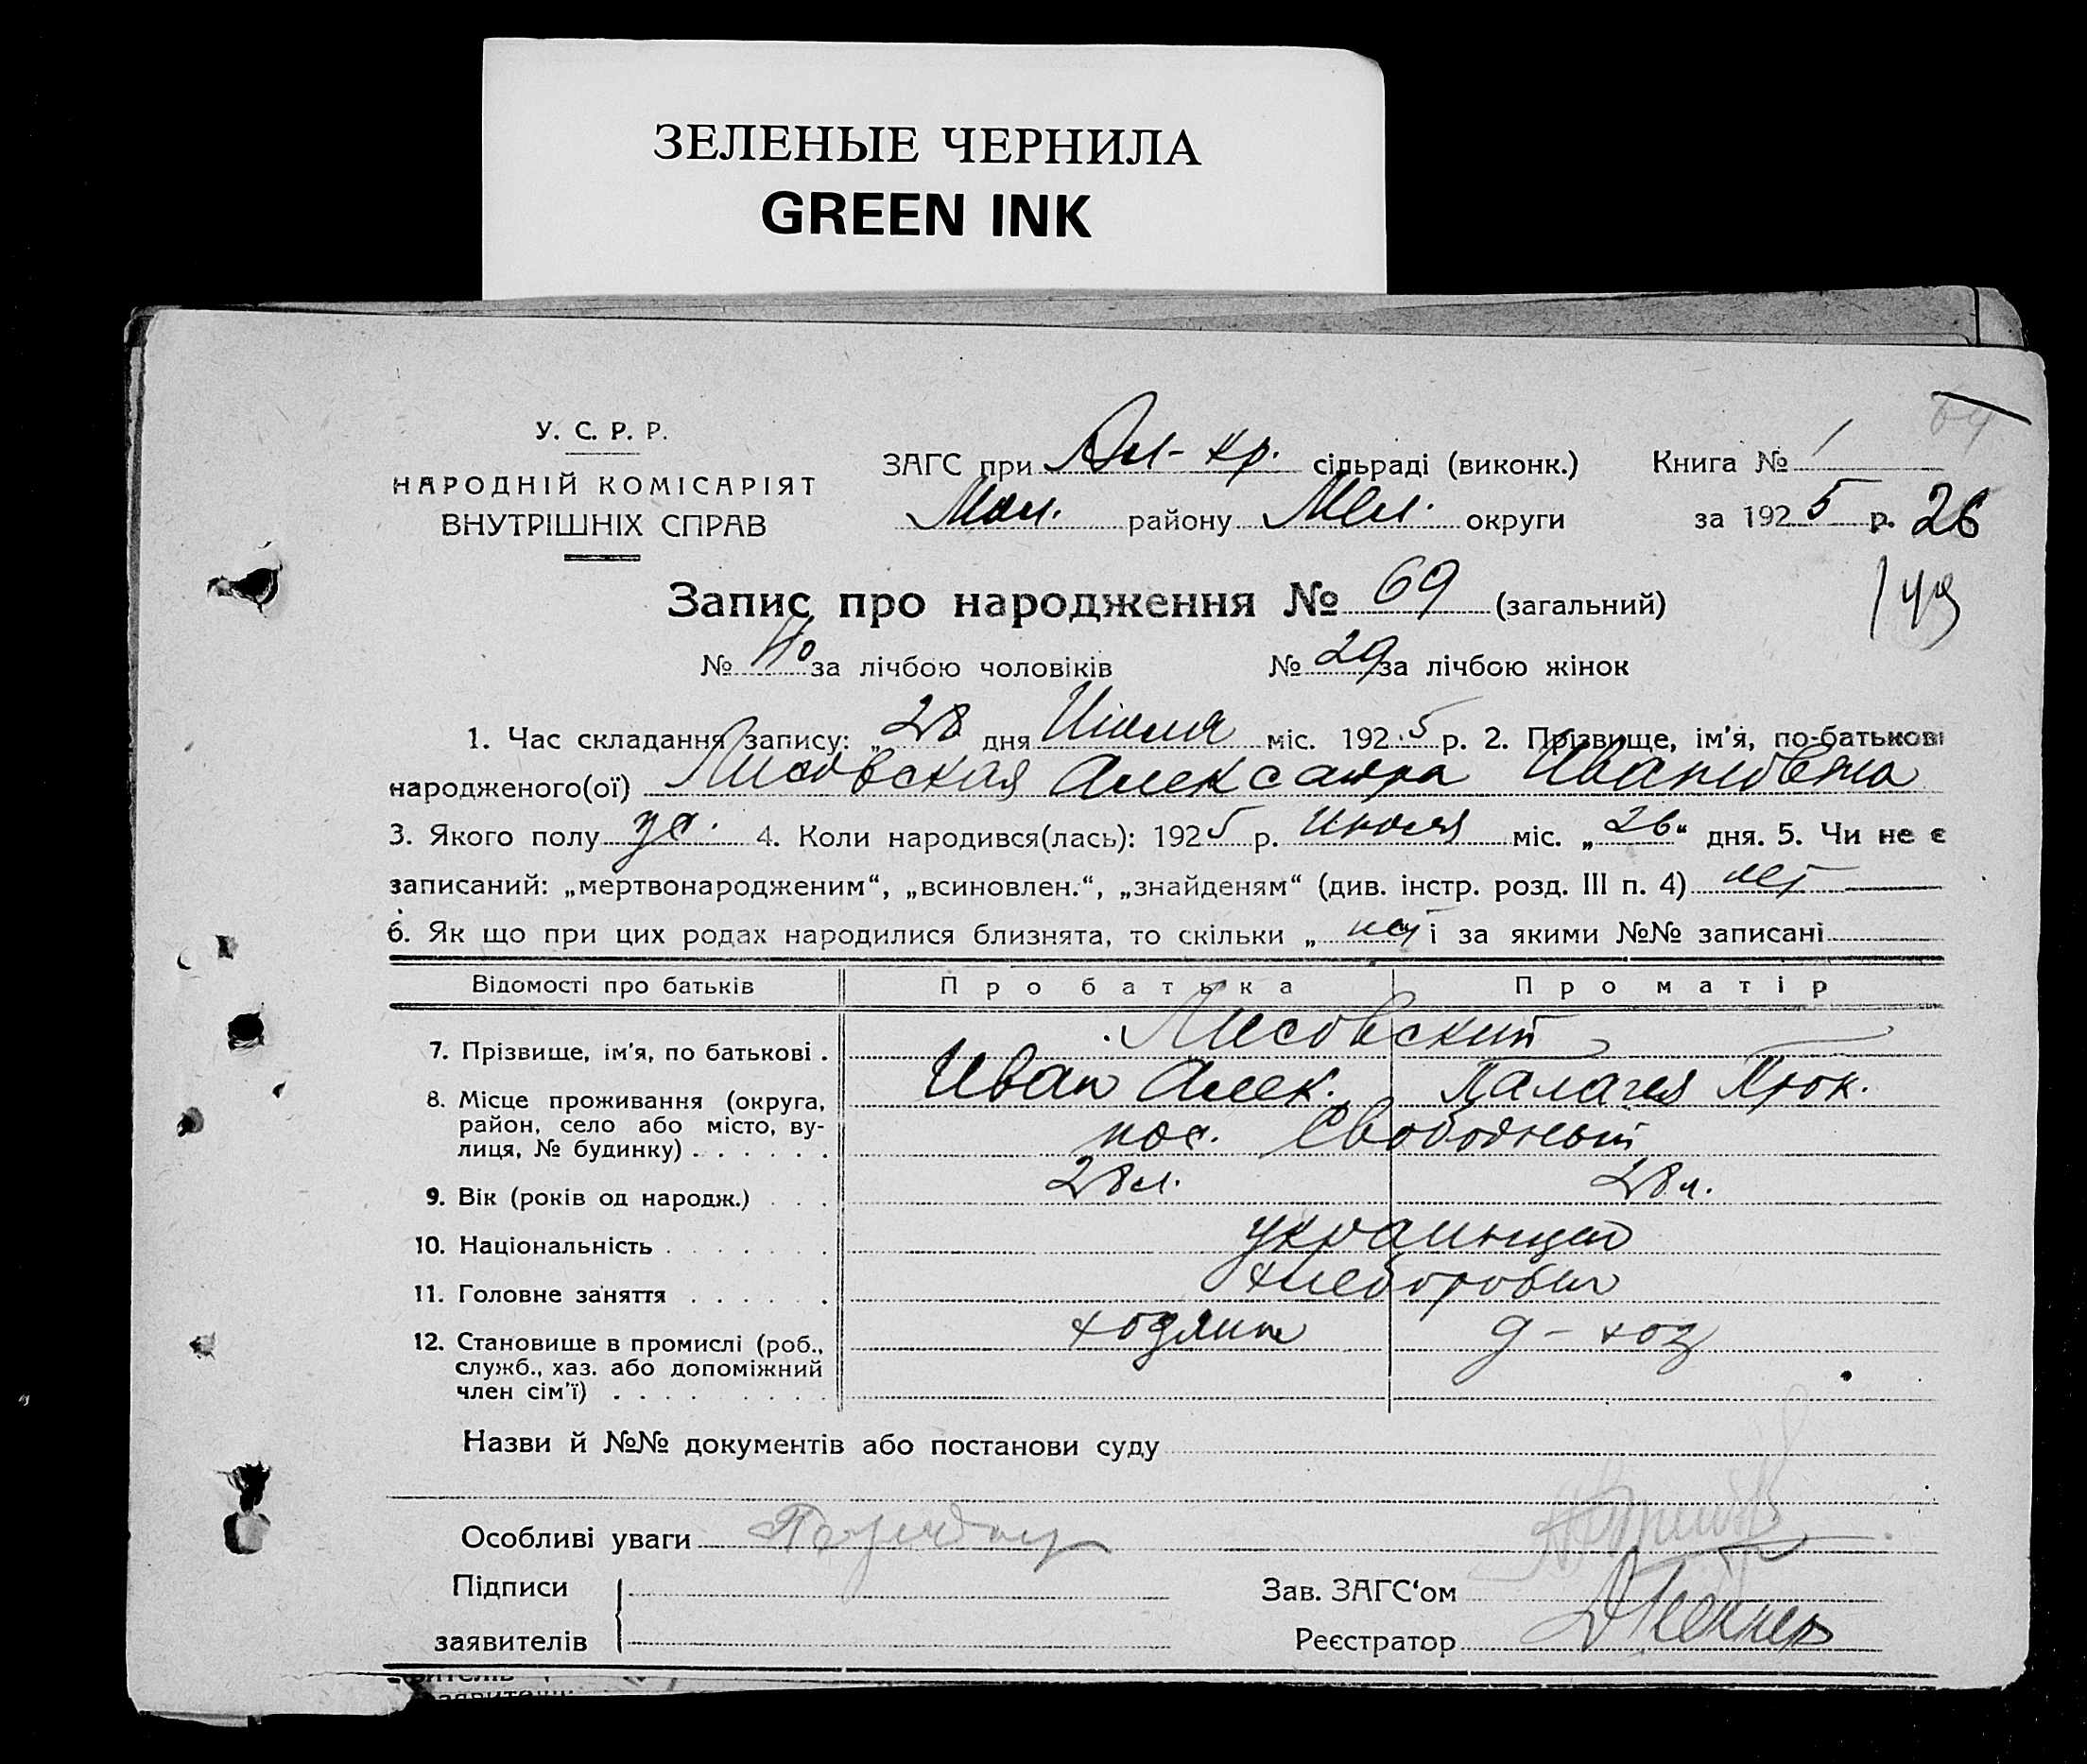 ЗЕЛЕНЫЕ ЧЕРНИЛА
GREEN INK
64
У. С. Р. Р.
НАРОДНІЙ КОМІСАРІЯТ
ВНУТРІШНІХ СПРАВ
ЗАГС при Ал-кр. сільраді (виконк.)
Книга № 1
району Мел. округи
за 1925 р. 26
149
Запис про народження № 69 (загальний)
№ 40 за лічбою чоловіків № 29 за лічбою жінок
1. Час складання запису: „28 дня Июля міс. 1925 р. 2. Прізвище, ім'я, по-батькові
народженого(ої) Лисовская Александра Ивановна
3. Якого полу 4. Коли народився(лась): 1925 р. июля міс. „26" дня. 5. Чи не є
записаний: „мертвонародженим“, „всиновлен.“, „знайденям“ (див. інстр. розд. III п. 4) нет
6. Як що при цих родах народилися близнята, то скільки „ нет і за якими №№ записані
Відомості про батьків Про батька Про матір
7. Прізвище, ім'я, по батькові . Лисовский
Иван Алек. Палагея Прок.
8. Місце проживання (округа,
район, село або місто, ву-
лиця, № будинку) . . . . . . пос. Свободный
9. Вік (років од народж.) . . . 28 л. 28 л.
10. Національність . . . . . . . украинцы
11. Головне заняття . . . . . . хлебороб
12. Становище в промислі (роб.,
служб., хаз. або допоміжний
член сім'ї) . . . . . . . . хозяин д-хоз
Назви й №№ документів або постанови суду
Особливі уваги
Підписи
заявителів
Зав. ЗАГС‘ом
Реєстратор